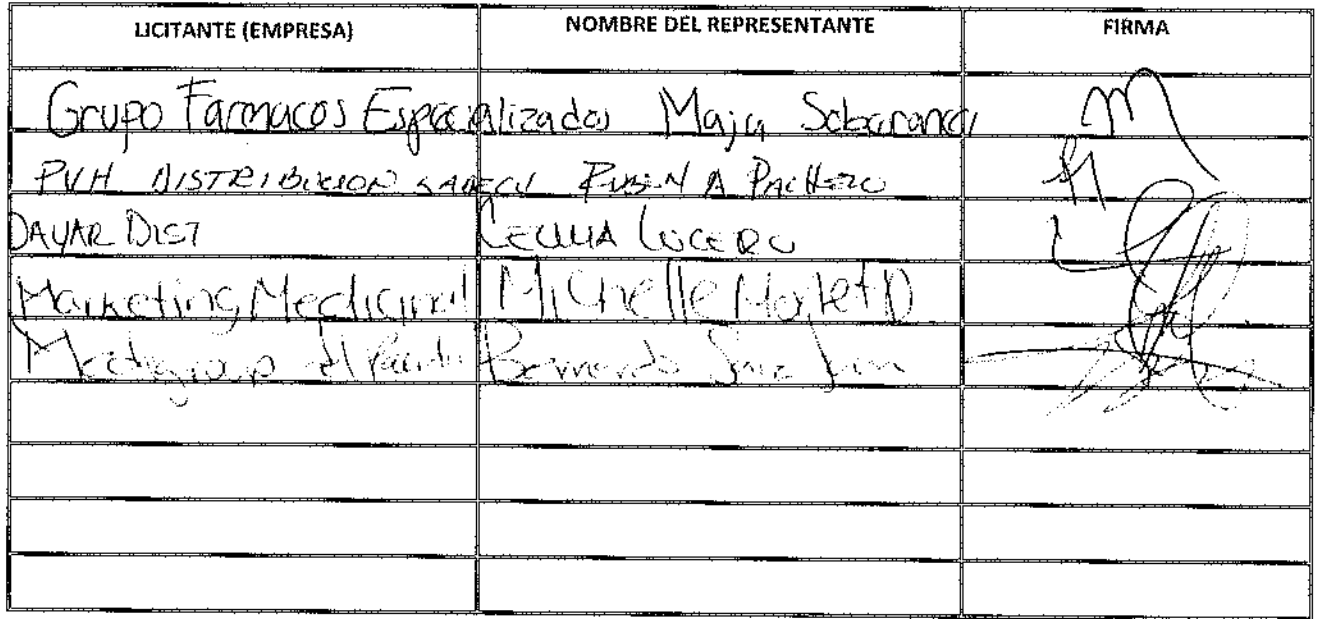 LICITANTE (EMPRESA) NOMBRE DEL REPRESENTANTE FIRMA
Grupo Farmacos Especializados Maja Sobarana
PVH DISTRIBUCION RUBEN A PACHECO
DAYAR DIST CECILIA LUCERO
Marketing Medicinal Michelle
Medigroup del Bernardo